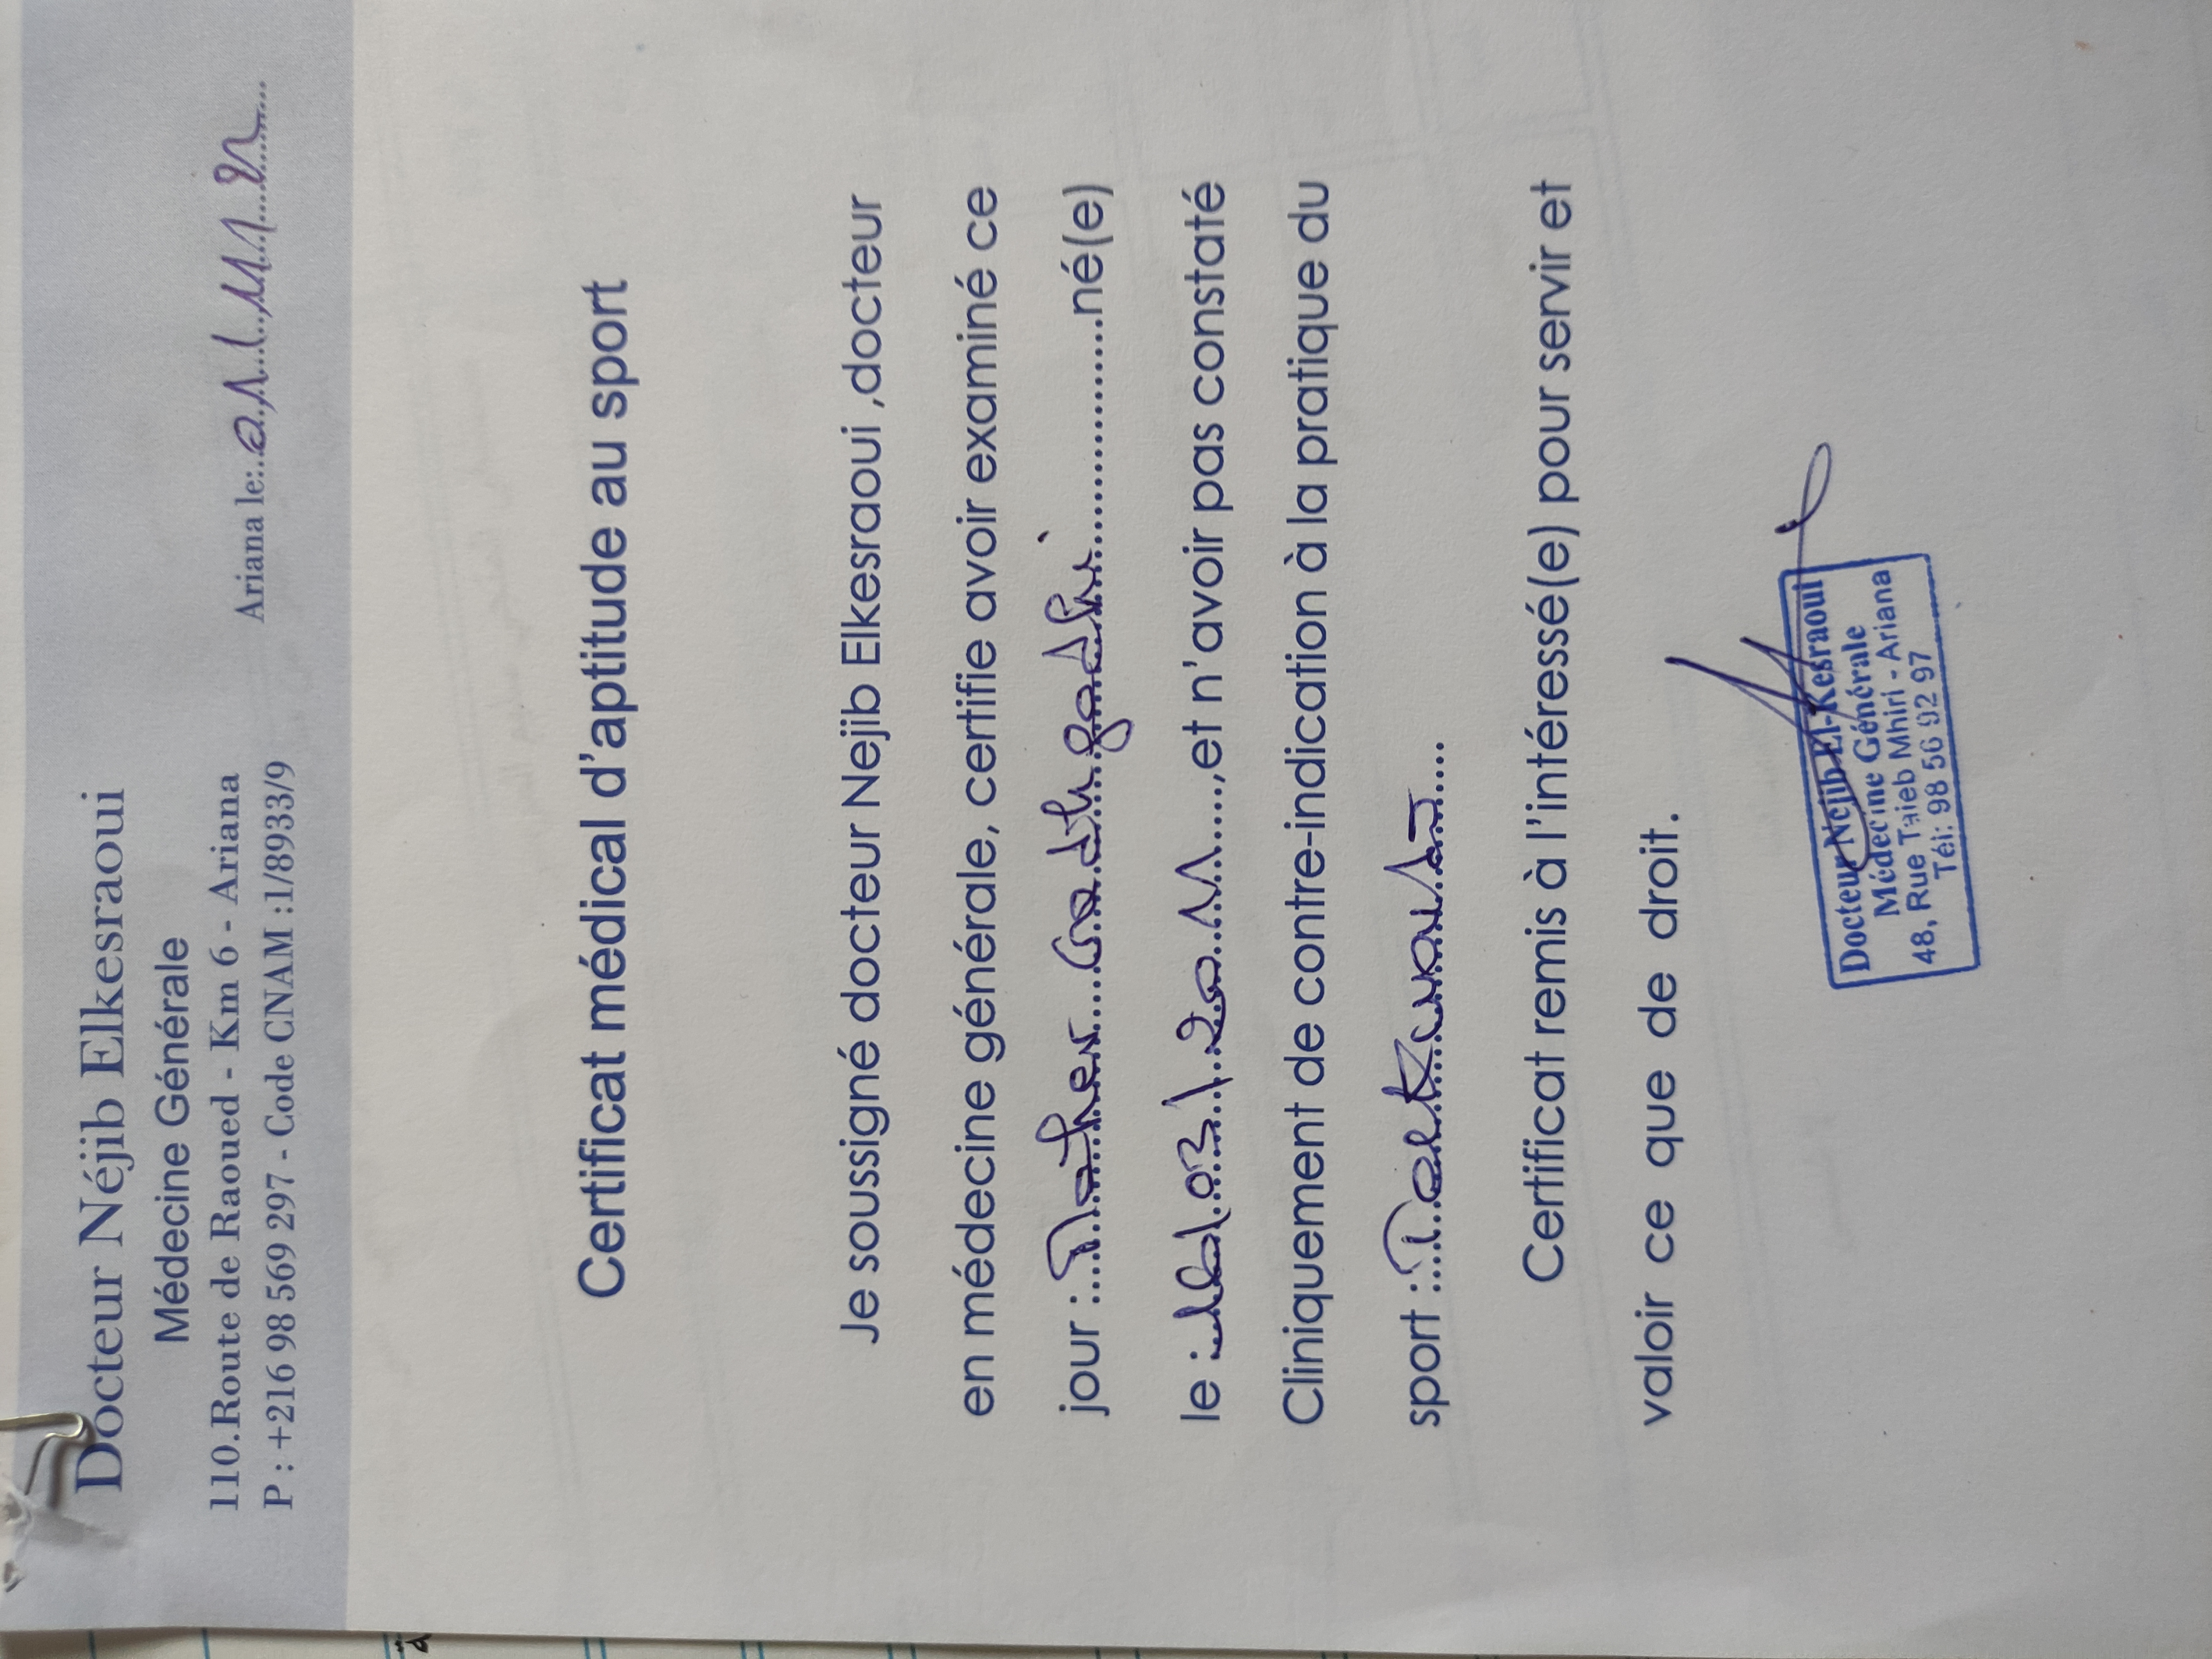 Docteur Néjib Elkesraoui
Médecine Générale
110.Route de Raoued - Km 6 - Ariana
P : +216 98 569 297 - Code CNAM :1/8933/9
Ariana le:
Certificat médical d'aptitude au sport
Je soussigné docteur Nejib Elkesraoui ,docteur
en médecine générale, certifie avoir examiné ce
jour : né(e)
le : ,et n'avoir pas constaté
Cliniquement de contre-indication à la pratique du
sport : Taekwondo
Certificat remis à l'intéressé(e) pour servir et
valoir ce que de droit.
Docteur Nejib El-Kesraoui
Médecine Générale
48, Rue Taieb Mhiri - Ariana
Tél: 98 56 92 97